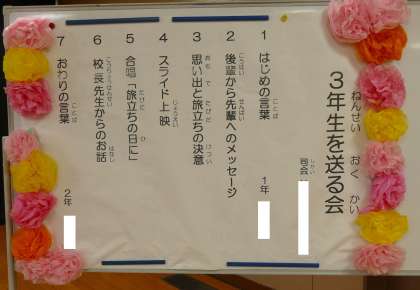 3年生を送る会
ねんせい おく かい
司会
しかい
1 はじめの言葉 1年
ことば
2 後輩から先輩へのメッセージ
こうはい せんぱい
3 思い出と旅立ちの決意
おも で たびだ けつい
4 スライド上映
じょうえい
5 合唱「旅立ちの日に」
たびだ ひ
6 校長先生からのお話
こうちょうせんせい はなし
7 おわりの言葉 2年
ことば